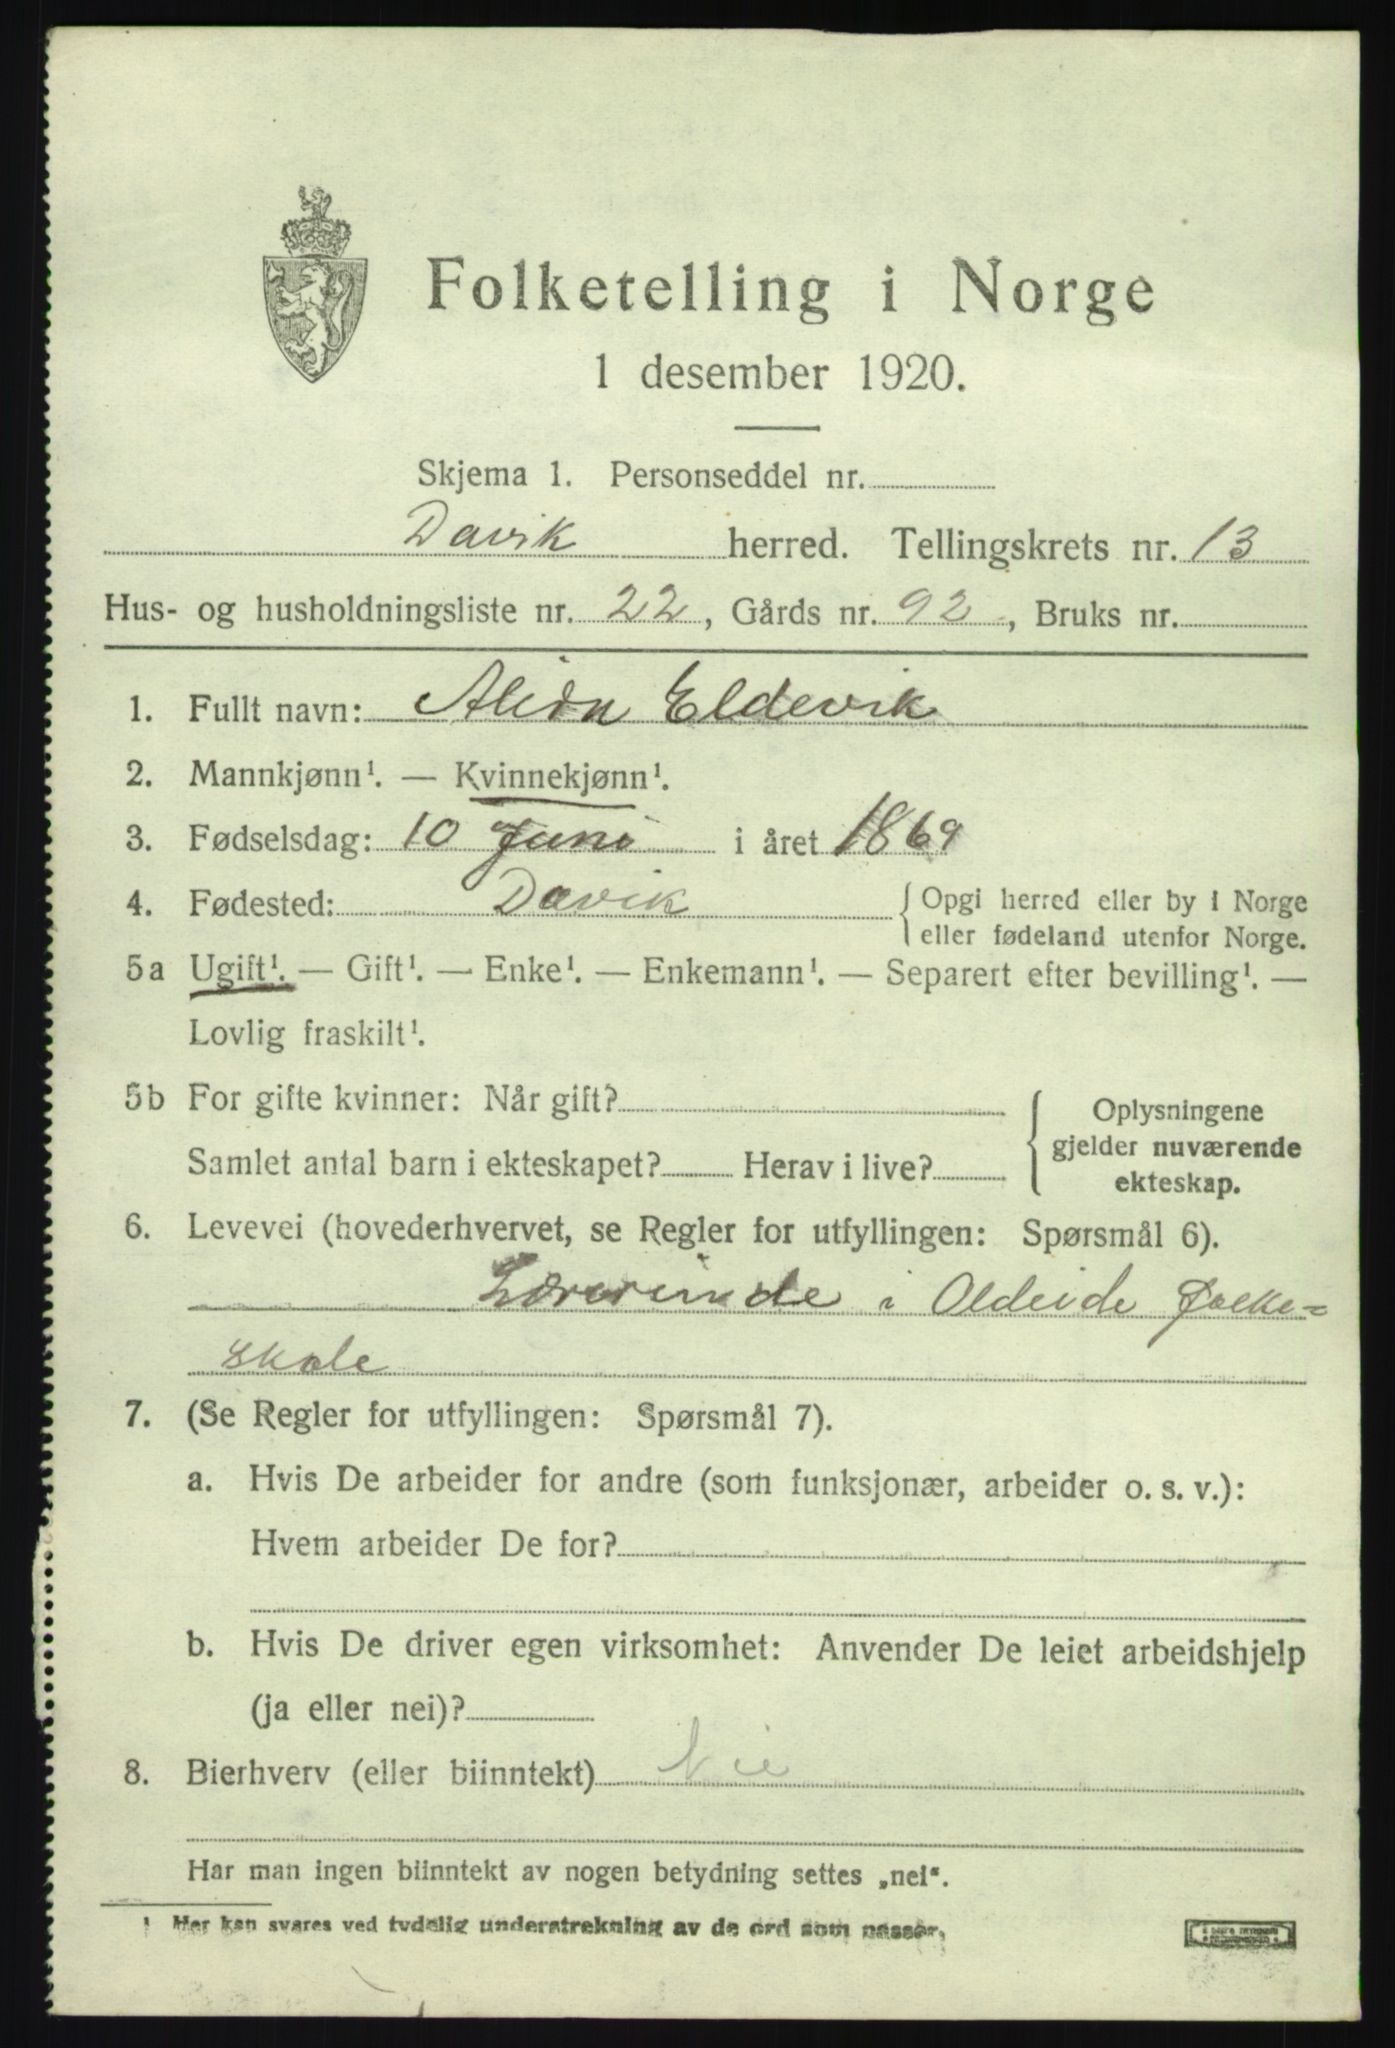 Folketelling i Norge
1 desember 1920.
Skjema 1. Personseddel nr.
Davik herred. Tellingskrets nr. 13
Hus- og husholdningsliste nr. 22, Gårds nr. 92, Bruks nr.
1. Fullt navn: Alida Eldevik
2. Mannkjønn¹. — Kvinnekjønn¹.
3. Fødselsdag: 10 Juni i året 1869
4. Fødested: Davik { Opgi herred eller by i Norge
eller fødeland utenfor Norge.
5a Ugift¹. — Gift¹. — Enke¹. — Enkemann¹. — Separert efter bevilling¹. —
Lovlig fraskilt¹.
5b For gifte kvinner: Når gift?
Samlet antal barn i ekteskapet? Herav i live?
Oplysningene
gjelder nuværende
ekteskap.
6. Levevei (hovederhvervet, se Regler for utfyllingen: Spørsmål 6).
Lærerinde i Aldeide folke=
skole
7. (Se Regler for utfyllingen: Spørsmål 7).
a. Hvis De arbeider for andre (som funksjonær, arbeider o. s. v.):
Hvem arbeider De for?
b. Hvis De driver egen virksomhet: Anvender De leiet arbeidshjelp
(ja eller nei)?
8. Bierhverv (eller biinntekt) Nie
Har man ingen biinntekt av nogen betydning settes „nei“.
¹ Her kan svares ved tydelig understrekning av de ord som passer.